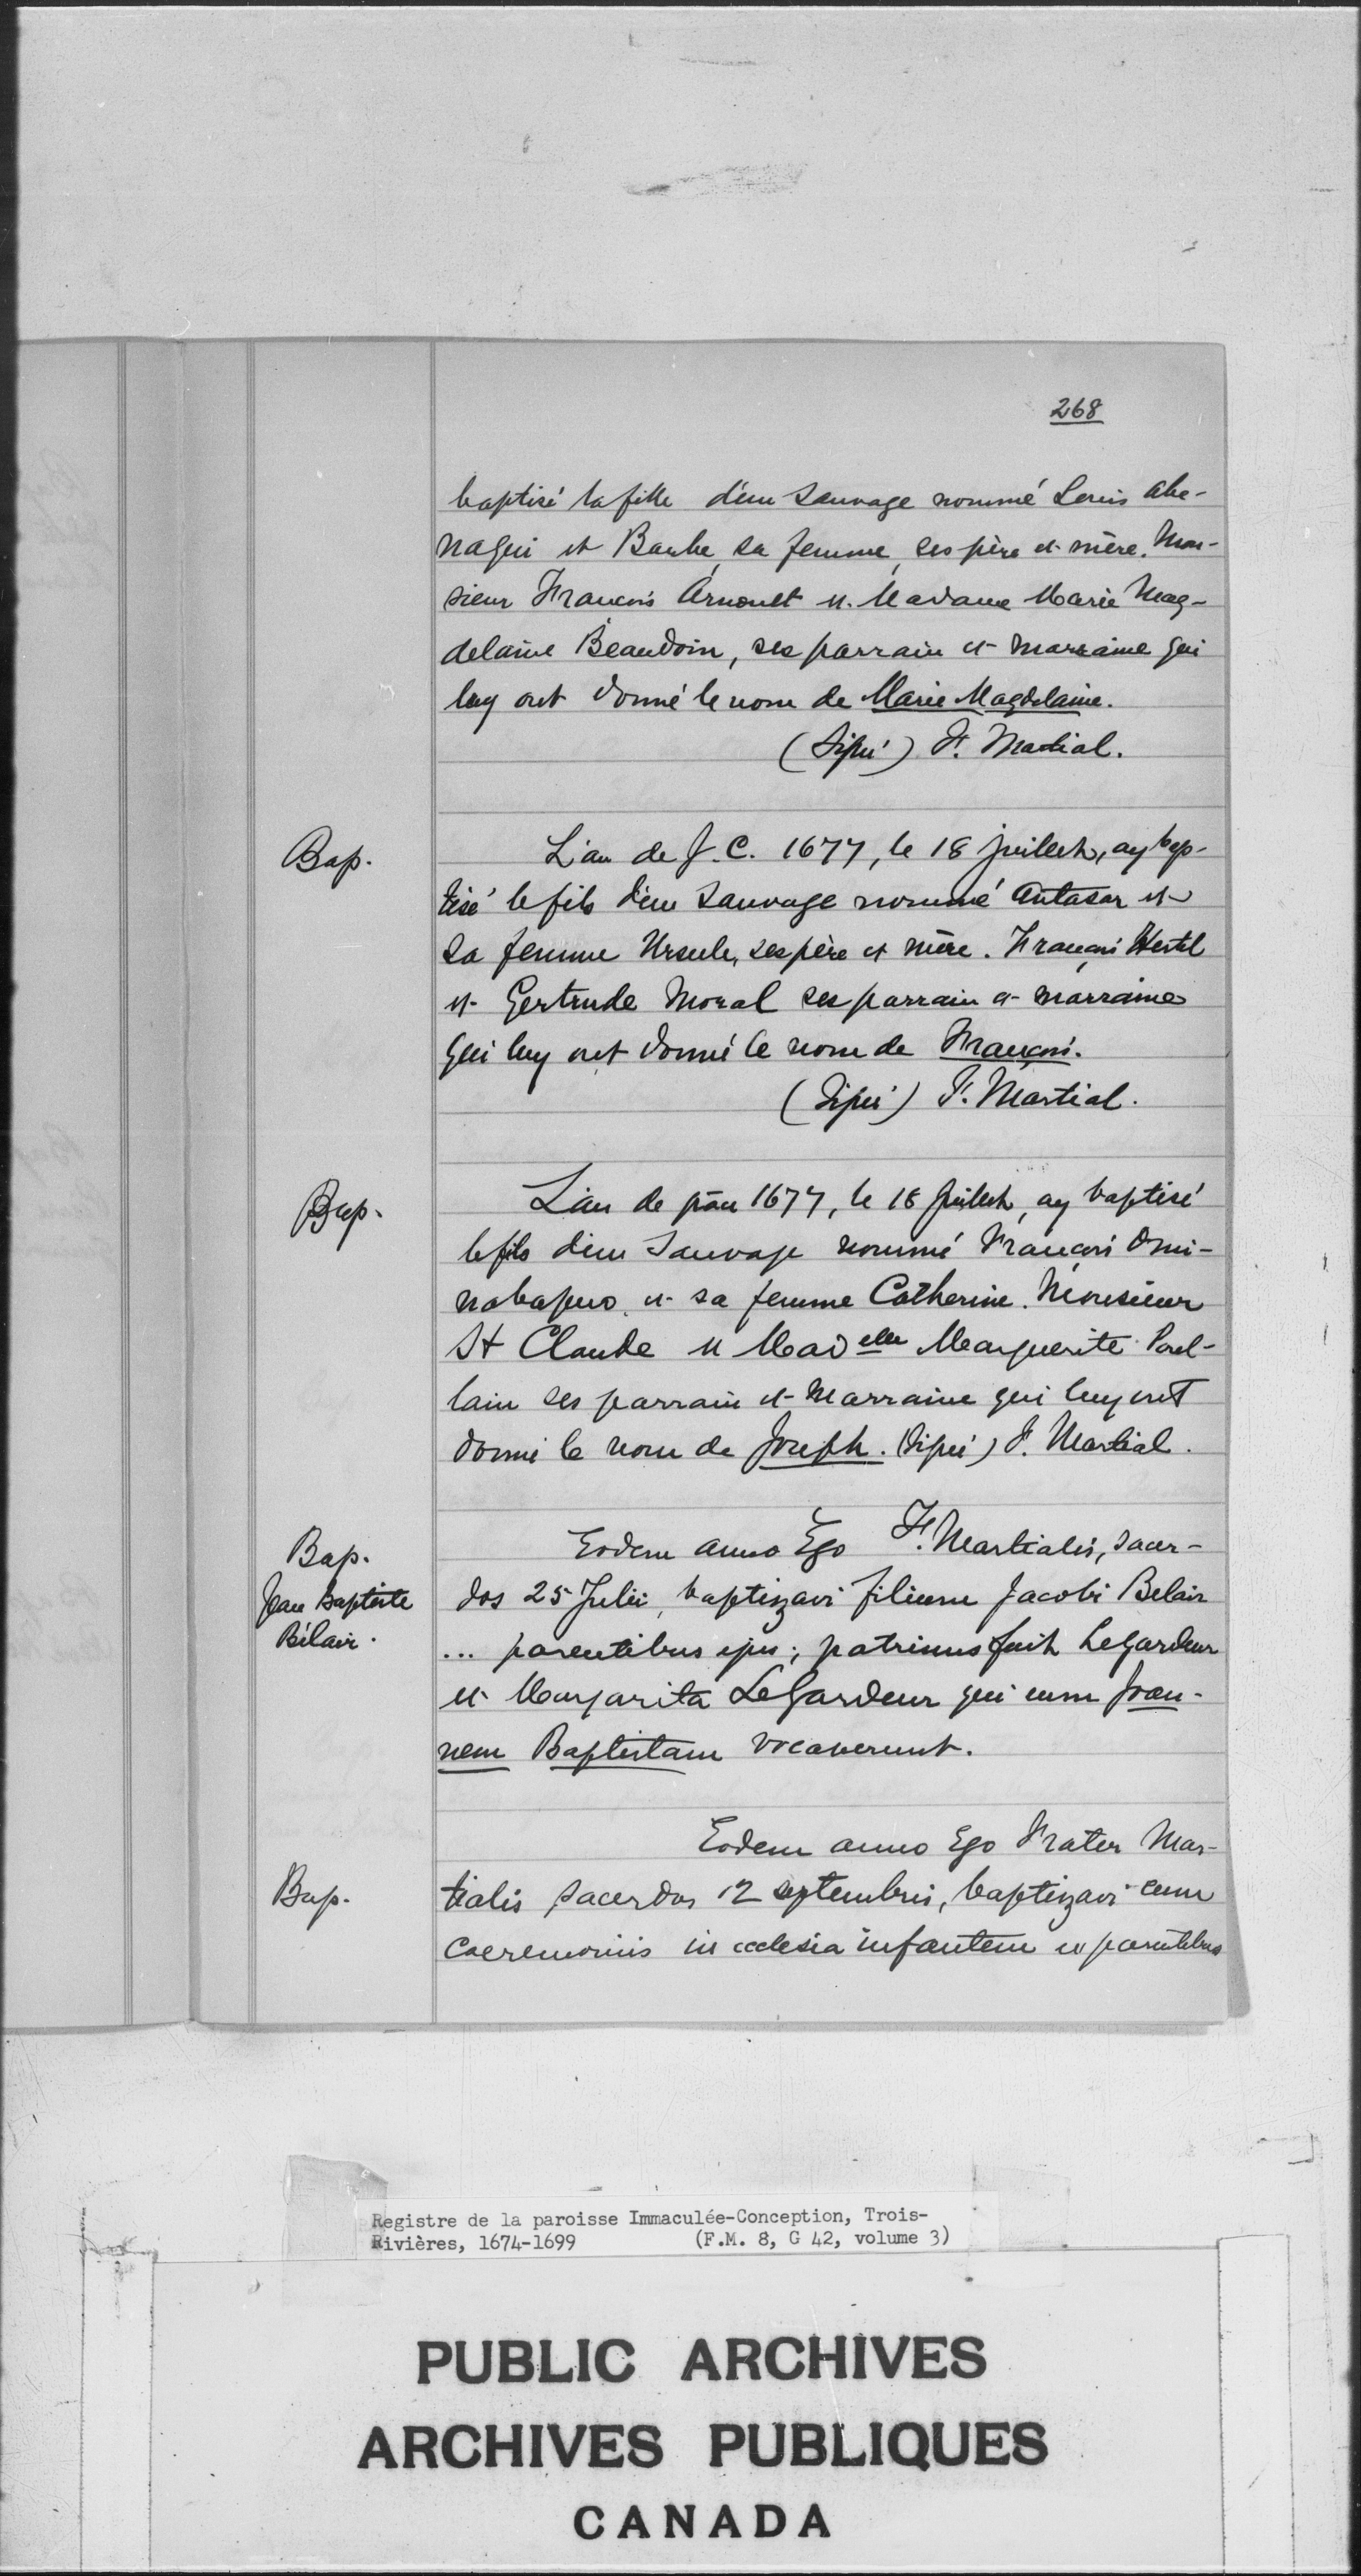 268
baptisé la fille d'un Sauvage nommé Louis Abe-
naqui et Barbe, sa femme, ses père et mère. Mon-
sieur François Arnoult et Madame Marie Mag-
delaine Beaudoin, ses parrain et marraine qui
luy ont donné le nom de Marie Magdelaine.
(Signé) F. Martial.
Bap.
L'an de J. C. 1677, le 18 juillet, ay bap-
tisé le fils d'un Sauvage nommé Antasar et
sa femme Ursule, ses père et mère. François Hertel
et Gertrude Moral ses parrain et marraine
qui luy ont donné le nom de François.
(Signé) F. Martial.
Bap.
L'an de 1677, le 18 Juillet, ay baptisé
le fils d'un Sauvage nommé François
et sa femme Catherine. Monsieur
St Claude et Madelle Marguerite
ses parrain et marraine qui luy ont
donné le nom de Joseph. (Signé) F. Martial.
Bap.
Jean Baptiste
Bélair.
Eodem anno Ego F. Martialis, sacer-
dos 25 Julii, baptizavi filium Jacobi Belair
... parentibus ejus; patrinus fuit LeGardeur
et Margarita LeGardeur qui eum Joan-
nem Baptistam vocaverunt.
Bap.
Eodem anno Ego Frater Mar-
tialis sacerdos 12 septembris, baptizavi cum
caeremoniis in ecclesia infantem ex parentibus
Registre de la paroisse Immaculée-Conception, Trois-
Rivières, 1674-1699 (F.M. 8, G 42, volume 3)
PUBLIC ARCHIVES
ARCHIVES PUBLIQUES
CANADA